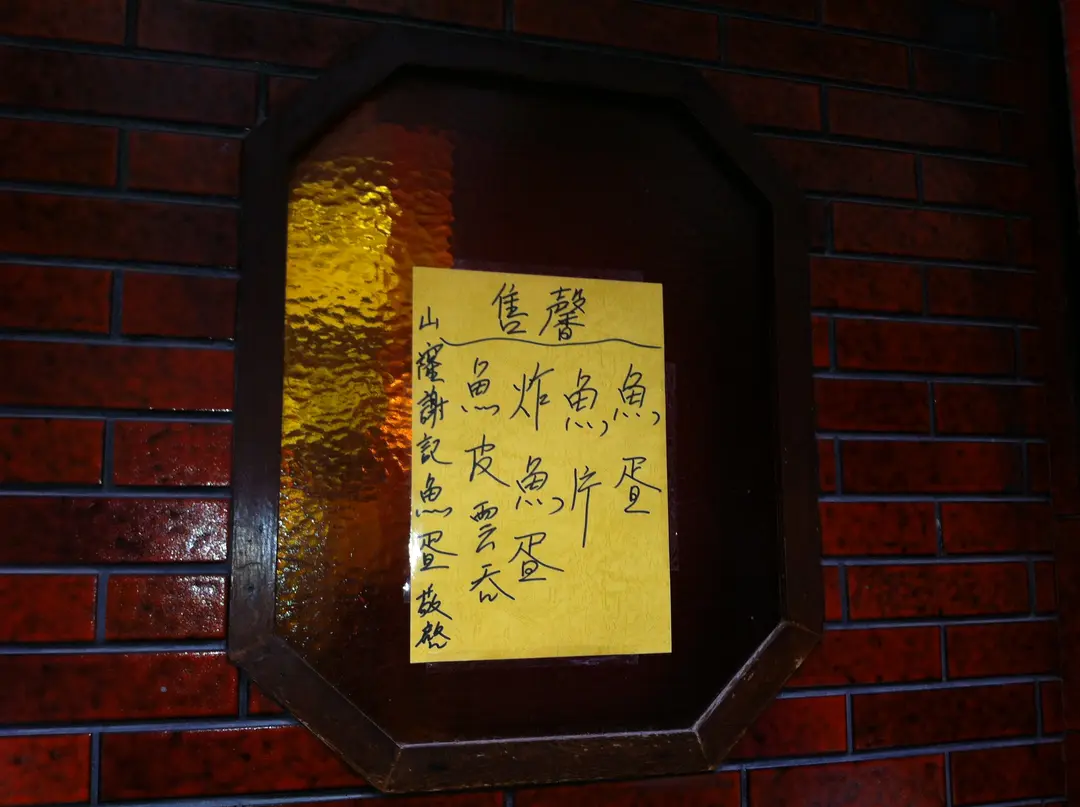 售馨
魚蛋
魚片
炸魚蛋
魚皮雲吞
山窿謝記魚蛋敬啟